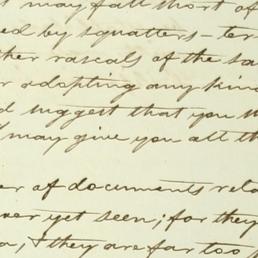 may fall short of
ed by squatters - ter
her rascals of the sa
r adopting any kin
d suggest that you
may give you all th
er of documents rela
ever yet seen; for they
a, & they are far too